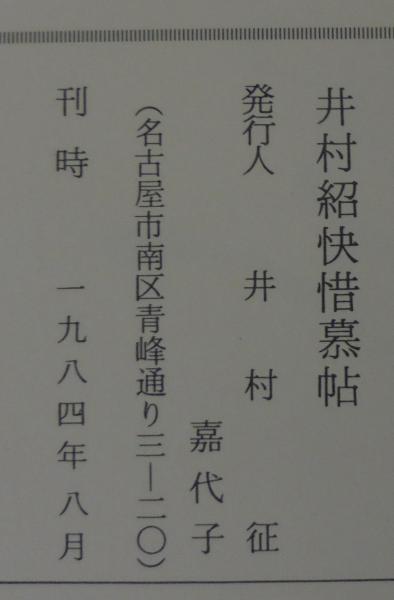 井村紹快惜慕帖
発行人 井村 征
嘉代子
(名古屋市南区青峰通り三ー二〇)
刊時 一九八四年八月